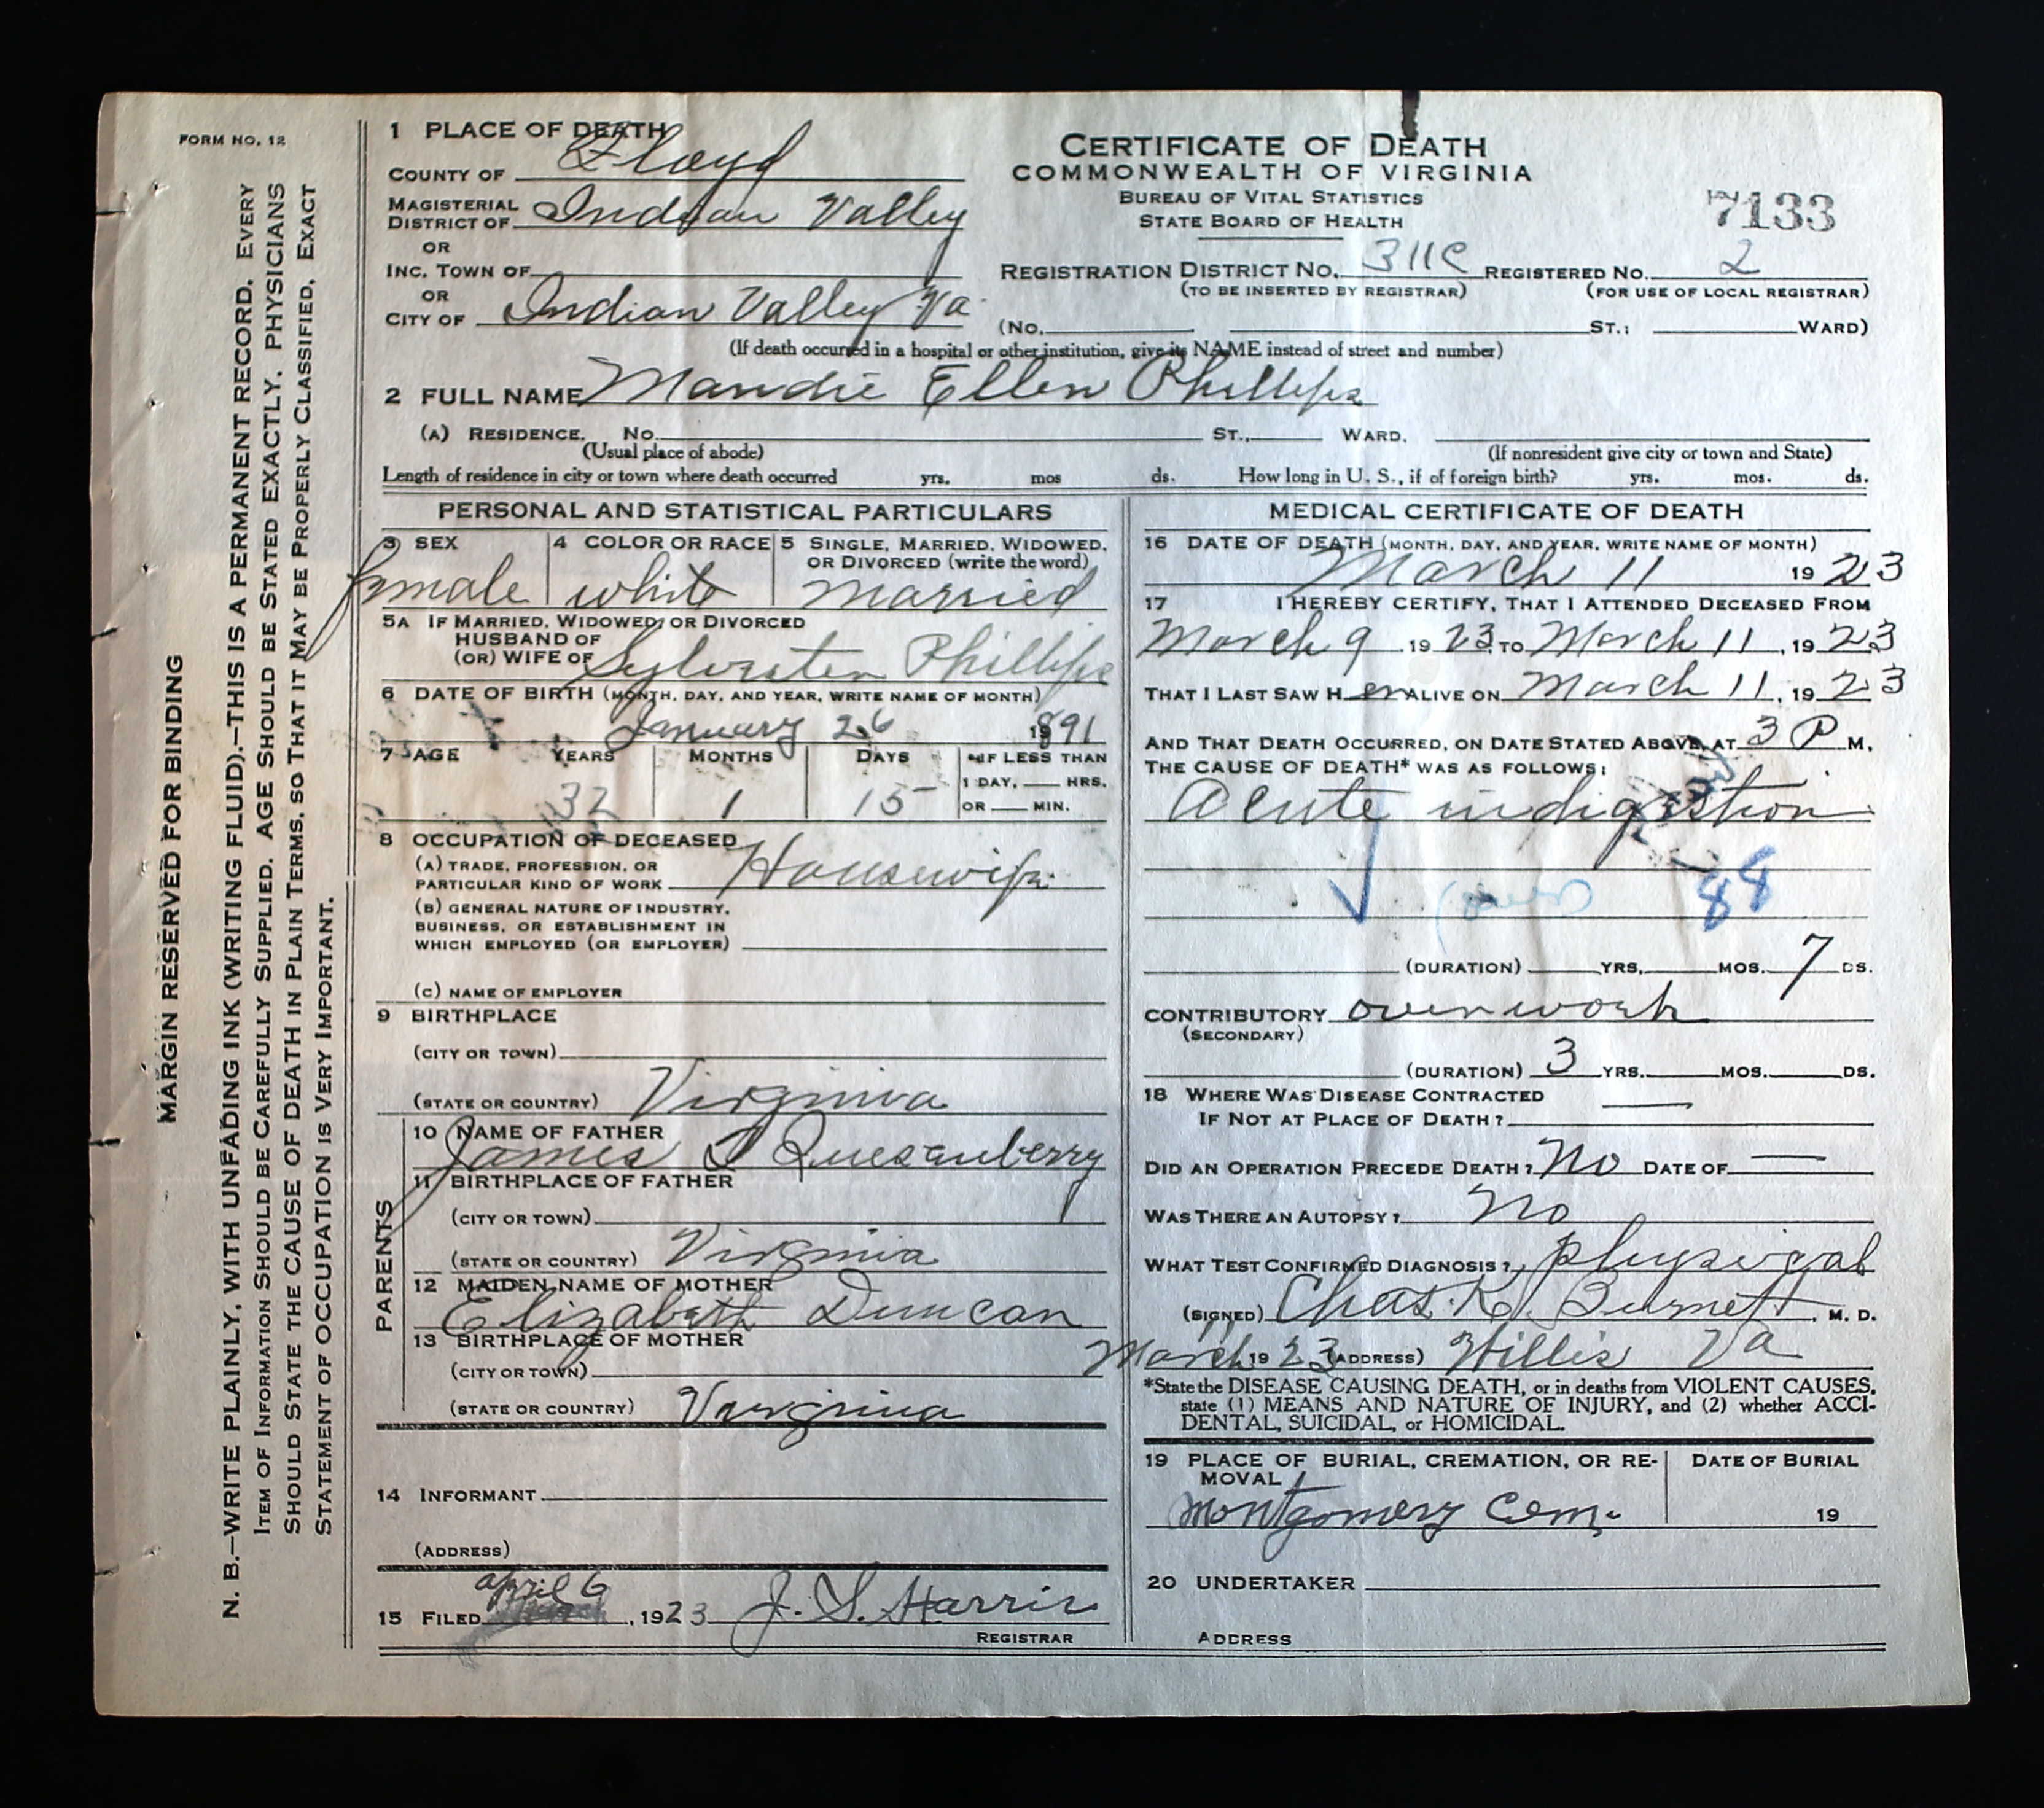 FORM NO. 12
MARGIN RESERVED FOR BINDING
N. B.—WRITE PLAINLY, WITH UNFADING INK (WRITING FLUID).—THIS IS A PERMANENT RECORD. EVERY
ITEM OF INFORMATION SHOULD BE CAREFULLY SUPPLIED. AGE SHOULD BE STATED EXACTLY. PHYSICIANS
SHOULD STATE THE CAUSE OF DEATH IN PLAIN TERMS, SO THAT IT MAY BE PROPERLY CLASSIFIED. EXACT
STATEMENT OF OCCUPATION IS VERY IMPORTANT.
1 PLACE OF DEATH
COUNTY OF Floyd
MAGISTERIAL DISTRICT OF Indian Valley
OR
INC. TOWN OF
OR
CITY OF Indian Valley Va.
CERTIFICATE OF DEATH
COMMONWEALTH OF VIRGINIA
BUREAU OF VITAL STATISTICS
STATE BOARD OF HEALTH
7133
REGISTRATION DISTRICT NO. 311C REGISTERED NO. 2
(TO BE INSERTED BY REGISTRAR) (FOR USE OF LOCAL REGISTRAR)
(No. ST.; WARD)
(If death occurred in a hospital or other institution, give its NAME instead of street and number)
2 FULL NAME Mandie Ellen Phillips
(A) RESIDENCE. No. ST., WARD.
(Usual place of abode) (If nonresident give city or town and State)
Length of residence in city or town where death occurred yrs. mos ds. How long in U. S., if of foreign birth? yrs. mos. ds.
PERSONAL AND STATISTICAL PARTICULARS
3 SEX 4 COLOR OR RACE 5 SINGLE, MARRIED, WIDOWED, OR DIVORCED (write the word)
female white married
5A IF MARRIED, WIDOWED, OR DIVORCED
HUSBAND OF
(OR) WIFE OF Sylvester Phillips
6 DATE OF BIRTH (MONTH, DAY, AND YEAR, WRITE NAME OF MONTH)
January 26 1891
7 AGE YEARS MONTHS DAYS IF LESS THAN
1 DAY, HRS.
32 1 15 OR MIN.
8 OCCUPATION OF DECEASED
(A) TRADE, PROFESSION, OR
PARTICULAR KIND OF WORK Housewife
(B) GENERAL NATURE OF INDUSTRY,
BUSINESS, OR ESTABLISHMENT IN
WHICH EMPLOYED (OR EMPLOYER)
(C) NAME OF EMPLOYER
9 BIRTHPLACE
(CITY OR TOWN)
(STATE OR COUNTRY) Virginia
PARENTS
10 NAME OF FATHER
James D Quesenberry
11 BIRTHPLACE OF FATHER
(CITY OR TOWN)
(STATE OR COUNTRY) Virginia
12 MAIDEN NAME OF MOTHER
Elizabeth Duncan
13 BIRTHPLACE OF MOTHER
(CITY OR TOWN)
(STATE OR COUNTRY) Virginia
14 INFORMANT
(ADDRESS)
15 FILED April 6, 1923 J. S. Harris
REGISTRAR
MEDICAL CERTIFICATE OF DEATH
16 DATE OF DEATH (MONTH, DAY, AND YEAR, WRITE NAME OF MONTH)
March 11 1923
17 I HEREBY CERTIFY, THAT I ATTENDED DECEASED FROM
March 9, 1923, TO March 11, 1923
THAT I LAST SAW H er ALIVE ON March 11, 1923
AND THAT DEATH OCCURRED, ON DATE STATED ABOVE, AT 3 P M.
THE CAUSE OF DEATH* WAS AS FOLLOWS:
Acute indigestion
88
(DURATION) YRS. MOS. 7 DS.
CONTRIBUTORY overwork
(SECONDARY)
(DURATION) 3 YRS. MOS. DS.
18 WHERE WAS DISEASE CONTRACTED
IF NOT AT PLACE OF DEATH? —
DID AN OPERATION PRECEDE DEATH? No DATE OF —
WAS THERE AN AUTOPSY? No
WHAT TEST CONFIRMED DIAGNOSIS? physical
(SIGNED) Chas. K. Burnett, M. D.
March 11 1923 (ADDRESS) Willis Va
*State the DISEASE CAUSING DEATH, or in deaths from VIOLENT CAUSES,
state (1) MEANS AND NATURE OF INJURY, and (2) whether ACCI-
DENTAL, SUICIDAL, or HOMICIDAL.
19 PLACE OF BURIAL, CREMATION, OR RE-
MOVAL DATE OF BURIAL
Montgomery Cem. 19
20 UNDERTAKER
ADDRESS